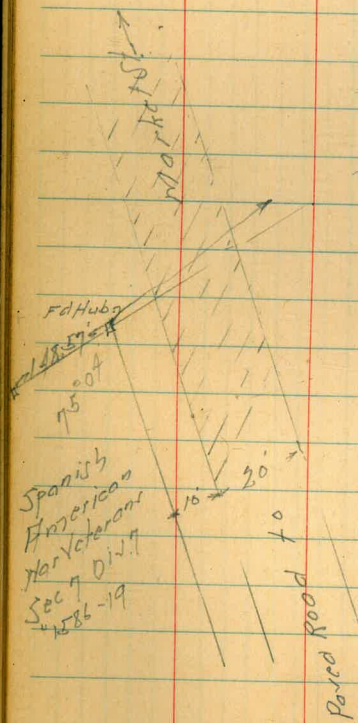 Market St.
Fd Hub
148.57'
75°04'
10'
20'
Spanish
American
War Veterans
Sec 7 Div. 7
1586-19
Paved Road to